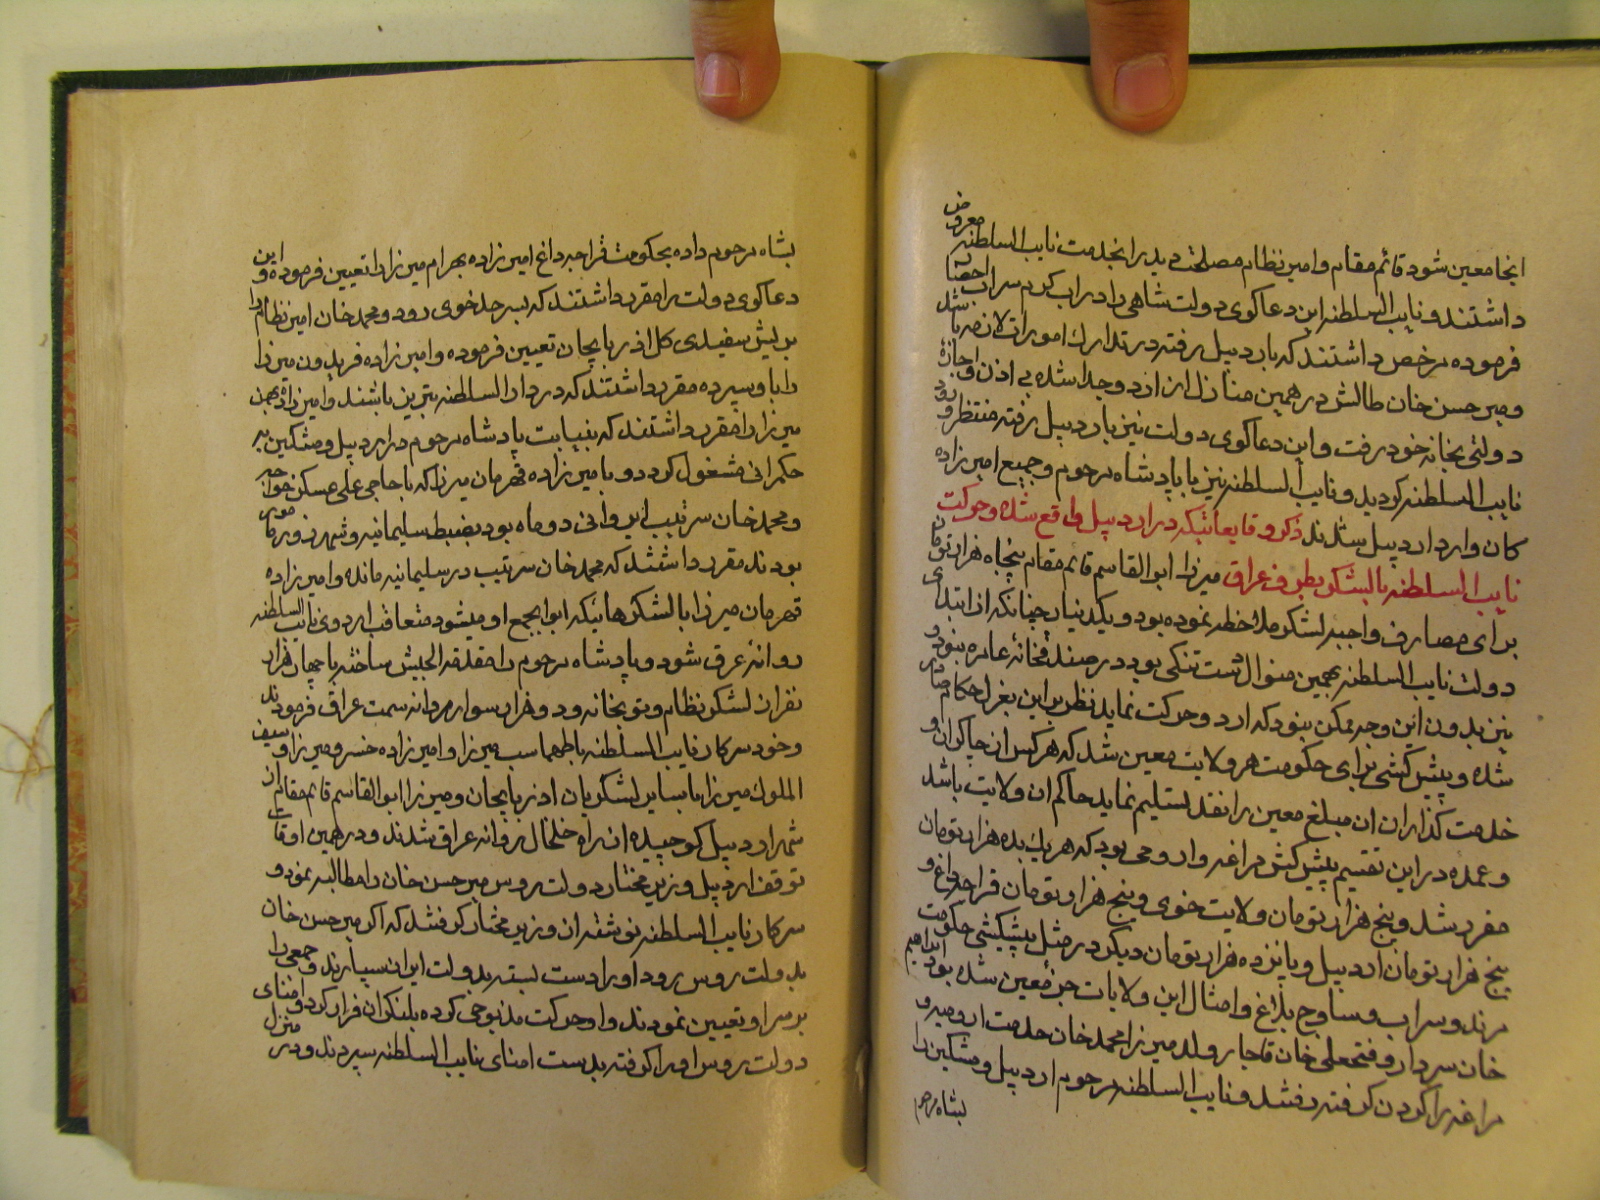 انجا معین شود قائم مقام و امین نظام مصلحت دید را بخدمت نایب السلطنه معروض
داشتند و نایب السلطنه این دعاکوی دولت شاهی را در اب کرم سراب احضار
فرموده مرخص داشتند که باردبیل رفته در تدارک امورات لازمه باشد
و میر حسن خان طالش در همین منازل از اردو جدا شده بی اذن و اجازهٔ
دولتی بخانه خود رفت و این دعاکوی دولت نیز باردبیل رفته منتظر ورود
نایب السلطنه کردید و نایب السلطنه نیز با پادشاه مرحوم و جمیع امیرزاده
کان وارد اردبیل شدند ذکر وقایعاتیکه در اردبیل واقع شده و حرکت
نایب السلطنه با لشکر بطرف عراق میرزا ابوالقاسم قائم مقام پنجاه هزار تومان
برای مصارف واجبه لشکر ملاحظه نموده بود و یکدینار چنانکه از ابتدای
دولت نایب السلطنه بهمین منوال دست تنکی بود در صندقخانهٔ عامره نبود و
نیز بدون این وجه ممکن نبود که اردو حرکت نماید نظر براین بعزل حکام صادر
شده و پیش کشی برای حکومت هر ولایت معین شد که هر کس از چاکران و
خدمت کذاران ان مبلغ معین را نقد تسلیم نماید حاکم ان ولایت باشد
و عمده در این تقسیم پیش کش مراغه و ارومی بود که هر یک بده هزار تومان
مقرر شد و پنج هزار تومان ولایت خوی و پنج هزار تومان قراجه داغ و
پنج هزار تومان اردبیل و پانزده هزار تومان دیکر در مثل پیشکشی حکومت
مرند و سراب و ساوج بلاغ و امثال این ولایات جزء معین شده بود ابراهیم
خان سردار و فتحعلی خان قاجار ولد میرزا محمد خان خدمت ارومیه و
مراغه را کردن کرفته رفتند و نایب السلطنه مرحوم اردبیل و مشکین را
بشاه مرحوم
بشاه مرحوم داده بحکومت قراجه داغ امیرزاده بهرام میرزا را تعیین فرموده و این
دعاکوی دولت را مقرر داشتند که بسرحد خوی رود و محمد خان امیر نظام را
بریش سفیدی کل اذربایجان تعیین فرموده و امیرزاده فریدون میرزا
را باو سپرده مقرر داشتند که در دارالسلطنه تبریز باشند و امیرزاده بهمن
میرزا را مقرر داشتند که بنیابت پادشاه مرحوم در اردبیل و مشکین به
حکمرانی مشغول کردد و با امیرزاده قهرمان میرزا که با حاجی علی عسکر خواجه
و محمد خان سرتیپ ایروانی دو ماه بود بضبط سلیمانیه و شهرزور مامور
بودند مقرر داشتند که محمد خان سرتیپ در سلیمانیه مانده و امیرزاده
قهرمان میرزا با لشکرهائیکه ابوابجمع او میشود متعاقب اردوی نایب السلطنه
روانهٔ عراق شود و پادشاه مرحوم را مقدمة الجیش ساخته با چهار هزار
نفر از لشکر نظام و توبخانه و دو هزار سواره روانه سمت عراق فرمودند
و خود سرکار نایب السلطنه با طهماسب میرزا و امیرزاده خسرو میرزا و سیف
الملوک میرزا با سایر لشکریان اذربایجان و میرزا ابوالقاسم قائم مقام از
شهر اردبیل کوچیده از راه خلخال روانه عراق شدند و در همین اوقات
توقف اردبیل وزیر مختار دولت روس میر حسن خان را مطالبه نمود و
سرکار نایب السلطنه نوشته از وزیر مختار کرفتند که اکر میر حسن خان
بدولت روس رود او را دست بسته بدولت ایران سپارند و جمعی را
بر سر او تعیین نمودند و او حرکت مذبوحی کرده بلنکران فرار کرد و امنای
دولت روس او را کرفته بدست امنای نایب السلطنه سپردند و در منزل